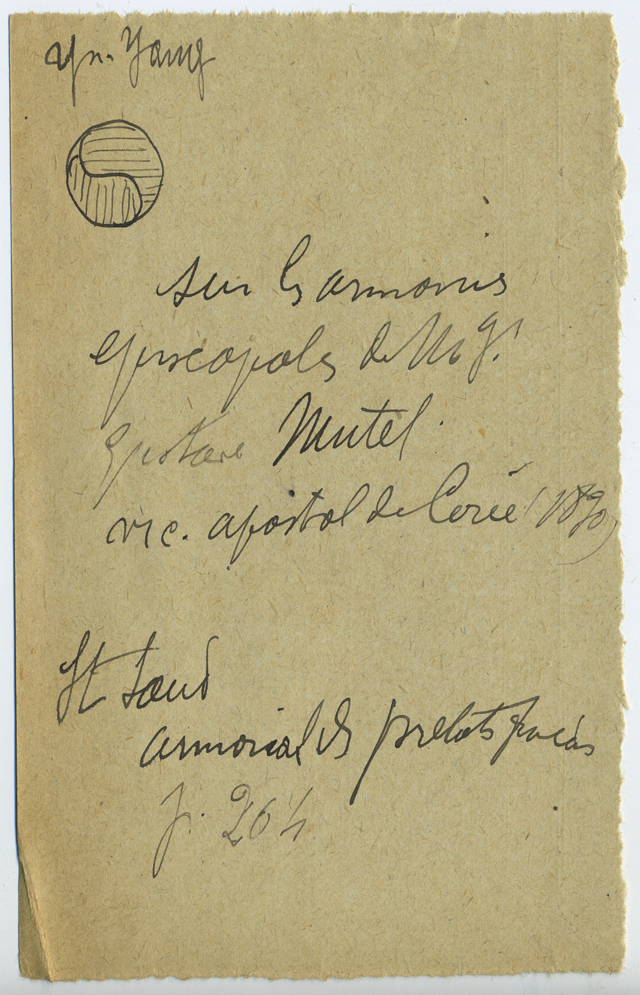 Yn-Yang
sur les armoiries
episcopales de Mgr
Gustave Mutel.
vic. apostol de Corée (1890)
St Saud
armorial des prelats français
p. 264